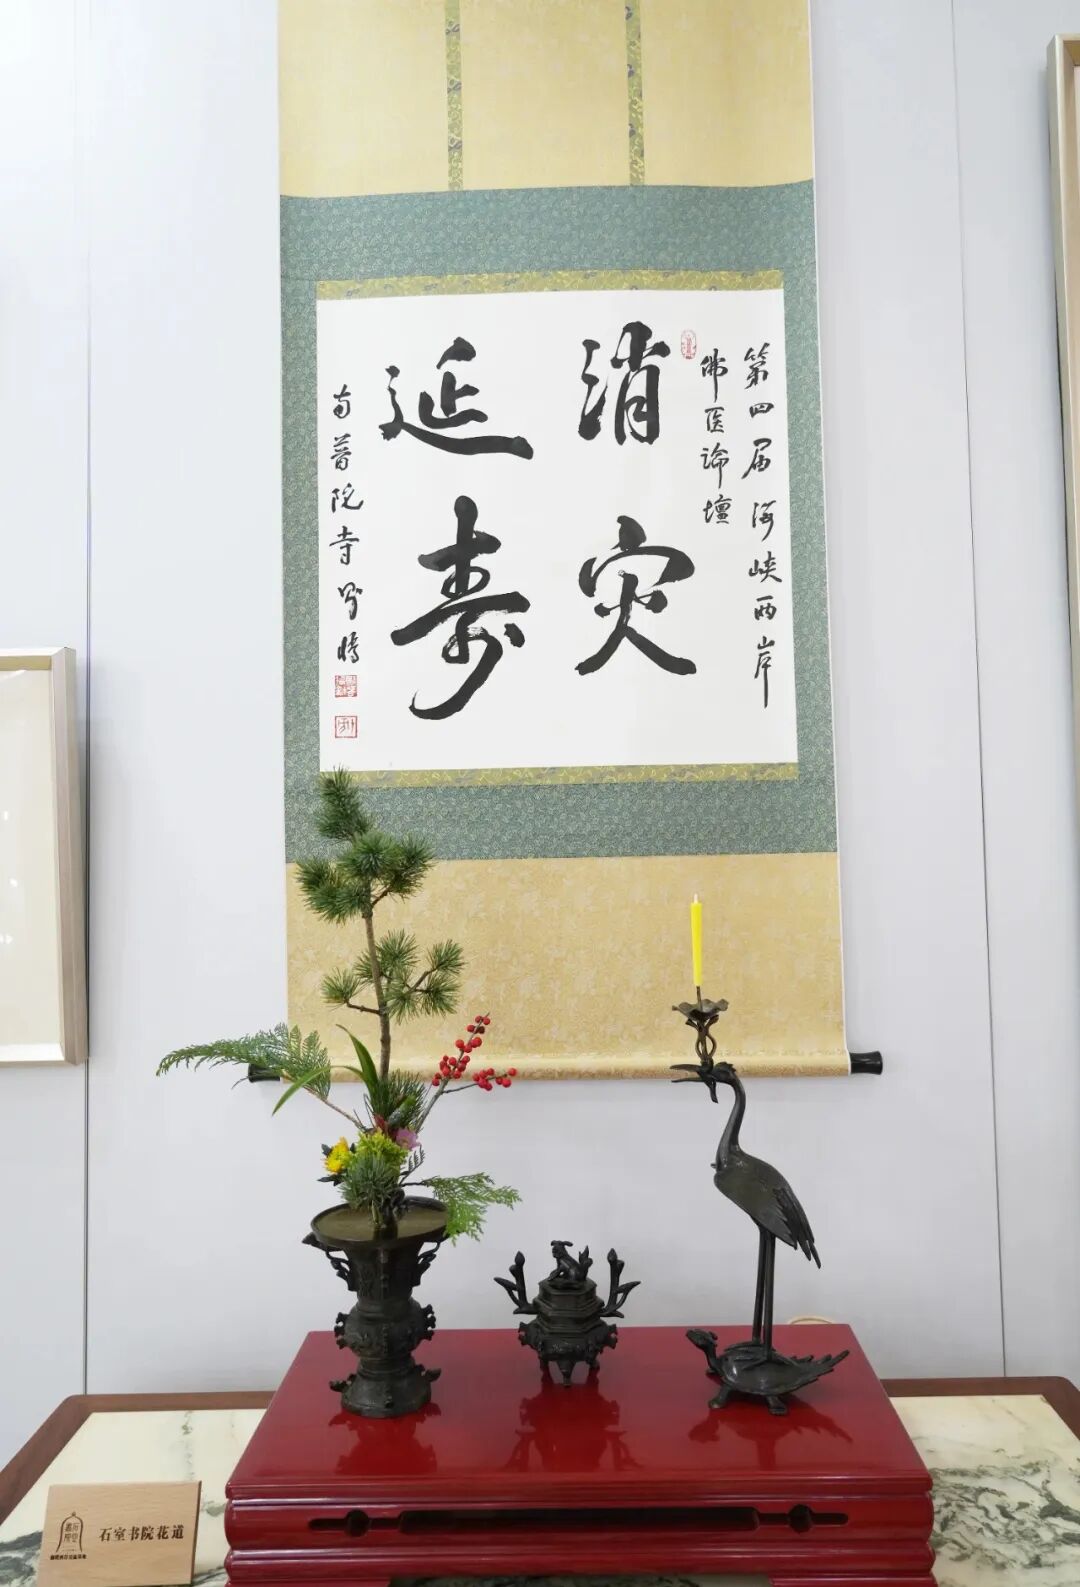 第四届海峡两岸
佛医论壇
消灾
延寿
南普陀寺则悟
石室书院花道